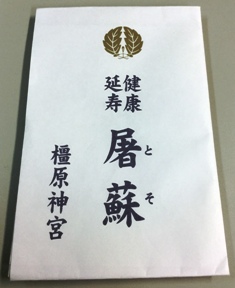 健康
延寿
屠蘇
とそ
橿原神宮